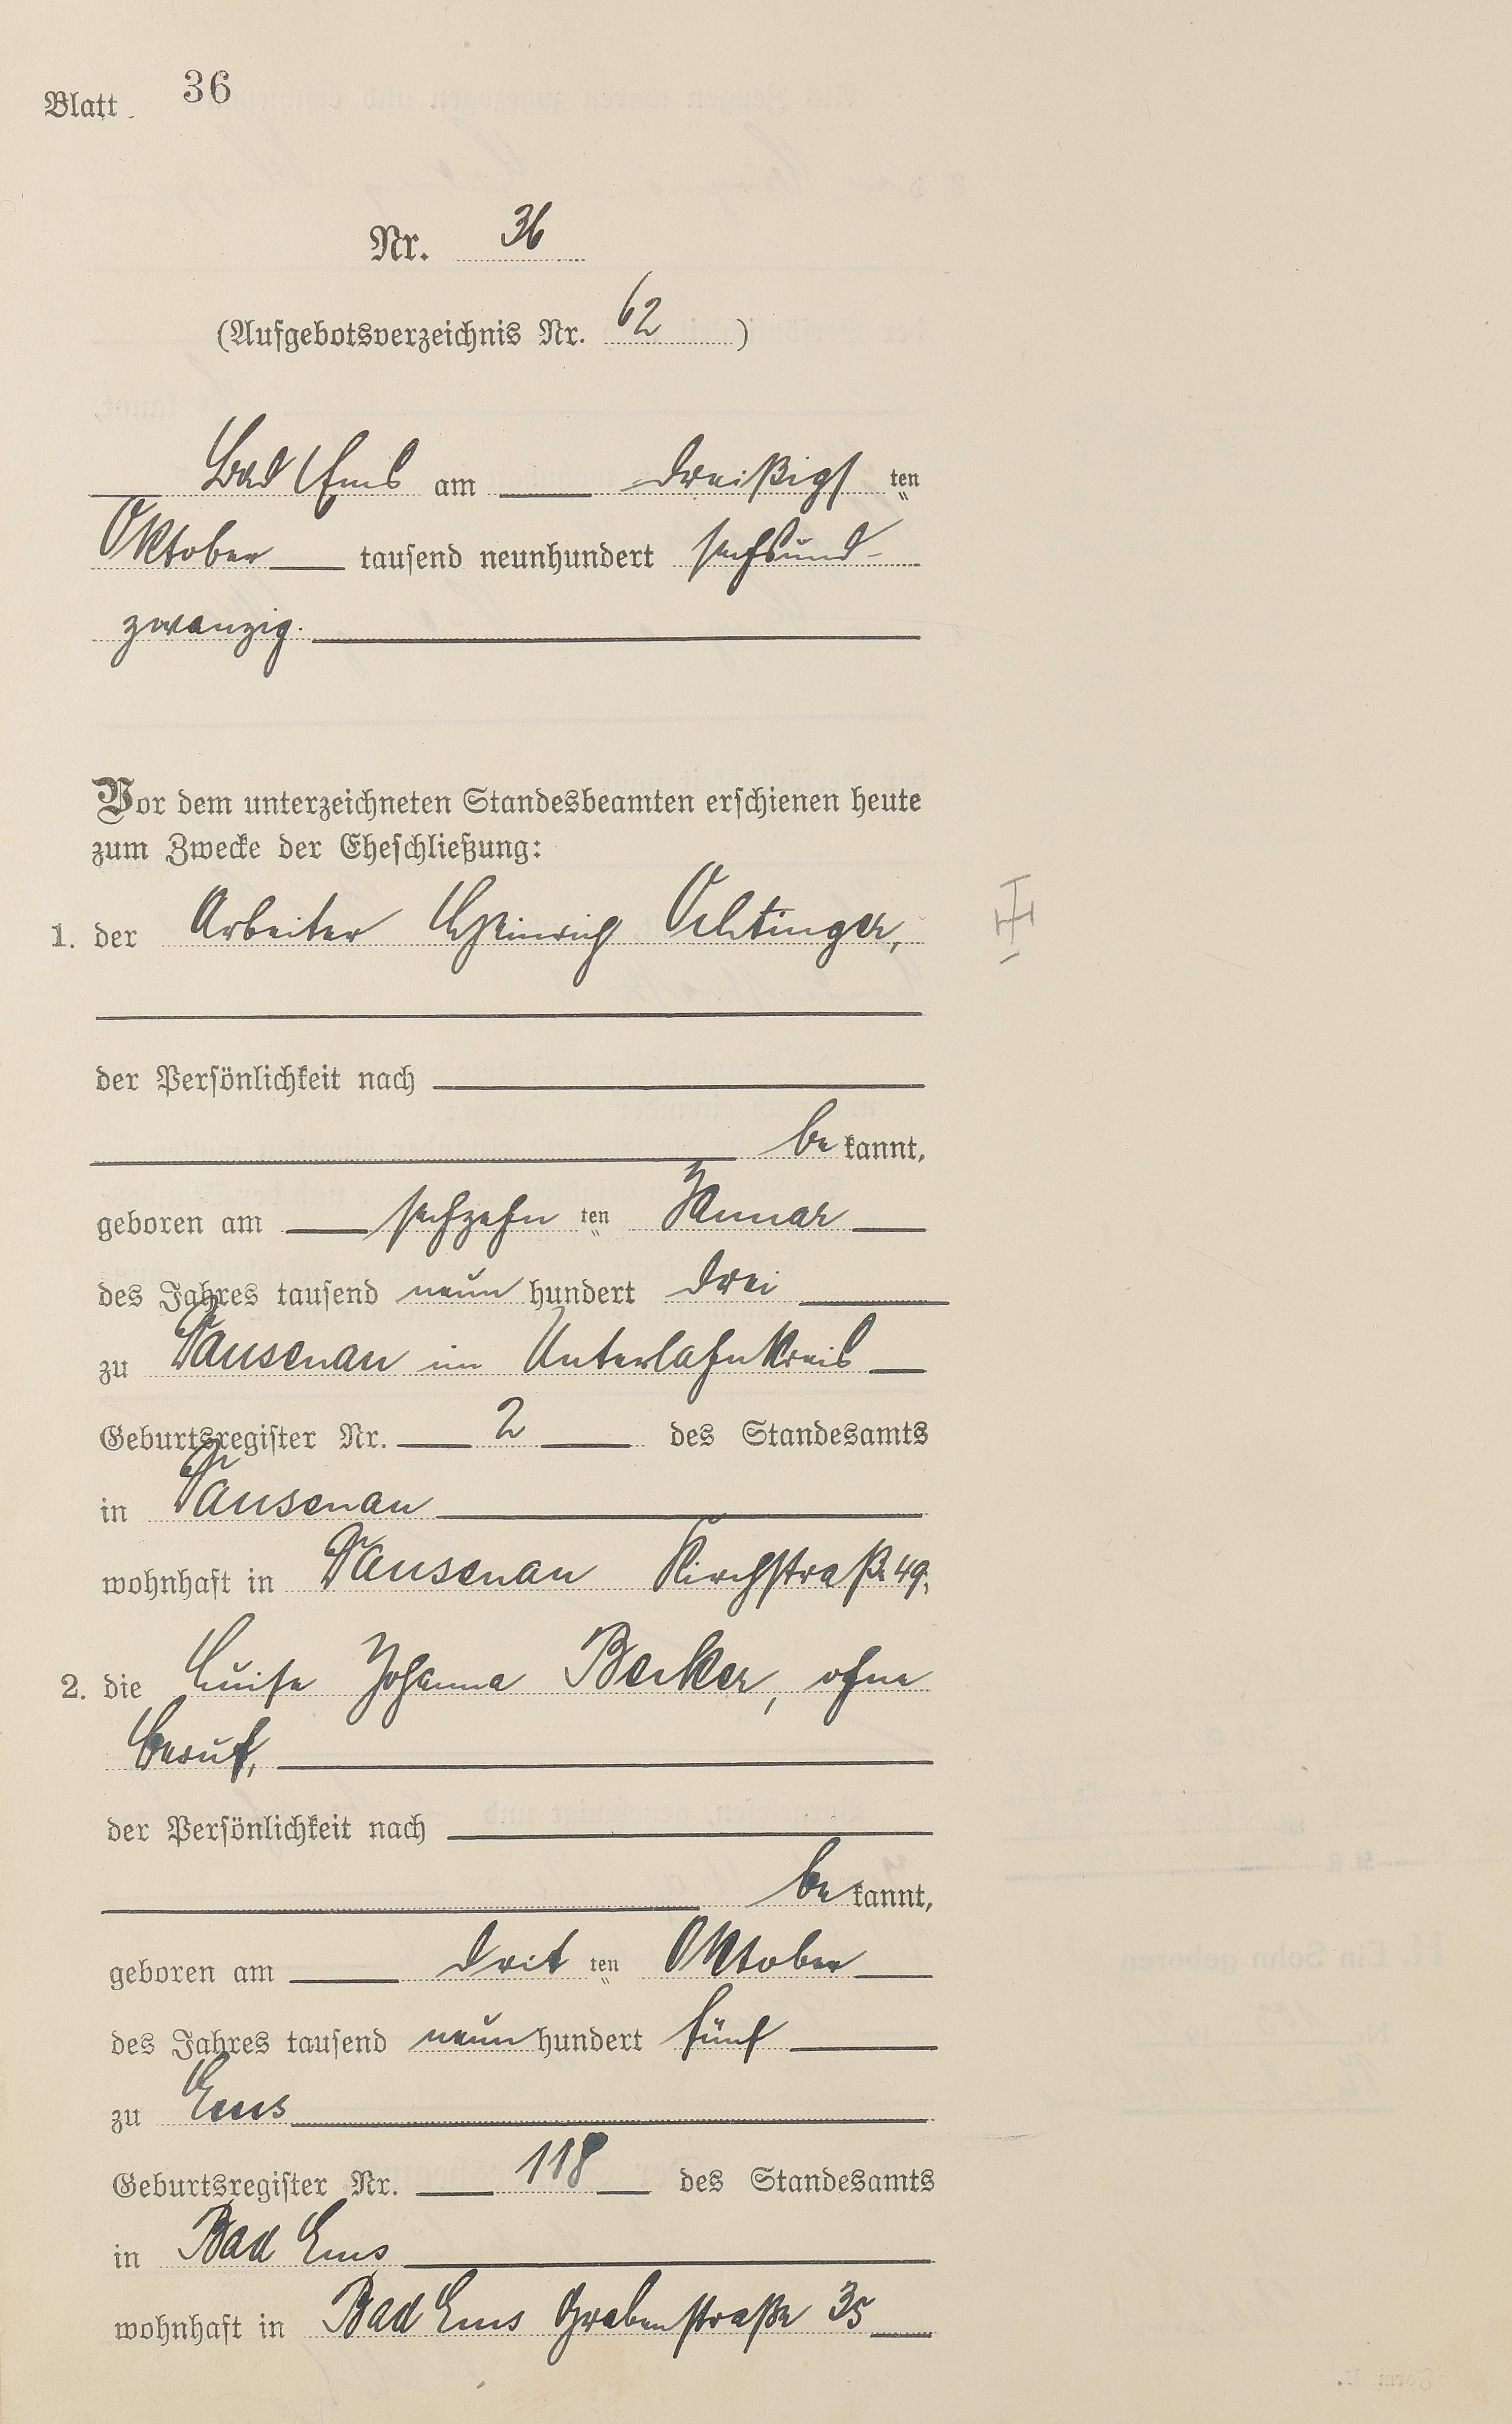 Blatt 36
Nr. 36
(Aufgebotsverzeichnis Nr. 62)
Bad Ems am dreißigsten
Oktober tausend neunhundert sechsund-
zwanzig.
Vor dem unterzeichneten Standesbeamten erschienen heute
zum Zwecke der Eheschließung:
1. der Arbeiter Heinrich Oehtinger,
der Persönlichkeit nach
be kannt,
geboren am sechzehn ten Januar
des Jahres tausend neun hundert drei
zu Dausenau im Unterlahnkreis
Geburtsregister Nr. 2 des Standesamts
in Dausenau
wohnhaft in Dausenau Kirchstraße 49,
2. die Luise Johanna Becker, ohne
Beruf,
der Persönlichkeit nach
be kannt,
geboren am drit ten Oktober
des Jahres tausend neun hundert fünf
zu Ems
Geburtsregister Nr. 118 des Standesamts
in Bad Ems
wohnhaft in Bad Ems Grabenstraße 35